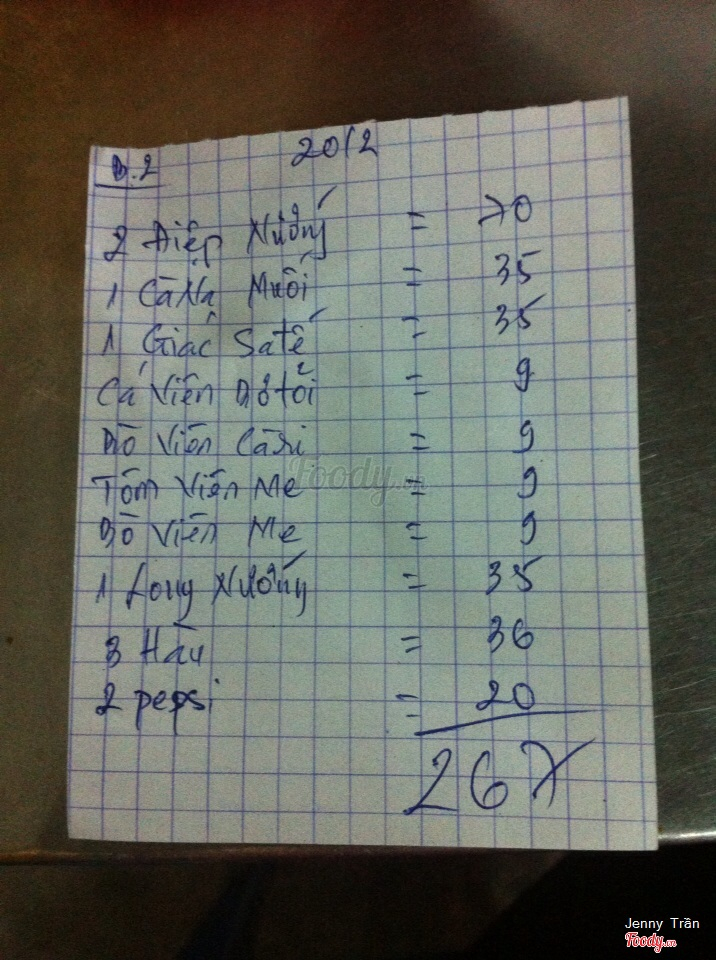 B.2 20/2
2 Điệp Nướng = 70
1 Cà Na Muối = 35
1 Giác Sa tế = 35
Cá Viên Bơ tỏi = 9
Bò Viên Cà Ri = 9
Tôm Viên Me = 9
Bò Viên Me = 9
1 Long Nướng = 35
3 Hàu = 36
2 pepsi = 20
267
Foody.vn
Jenny Trần
Foody.vn